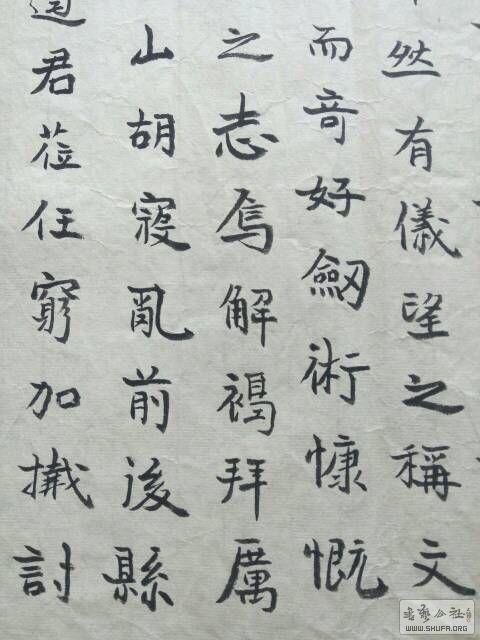 然有儀望之稱文
而竒好劒術慷慨
之志焉解褐拜厲
山胡寢亂前後縣
君莅任窮加討
书艺公社
WWW.SHUFA.ORG